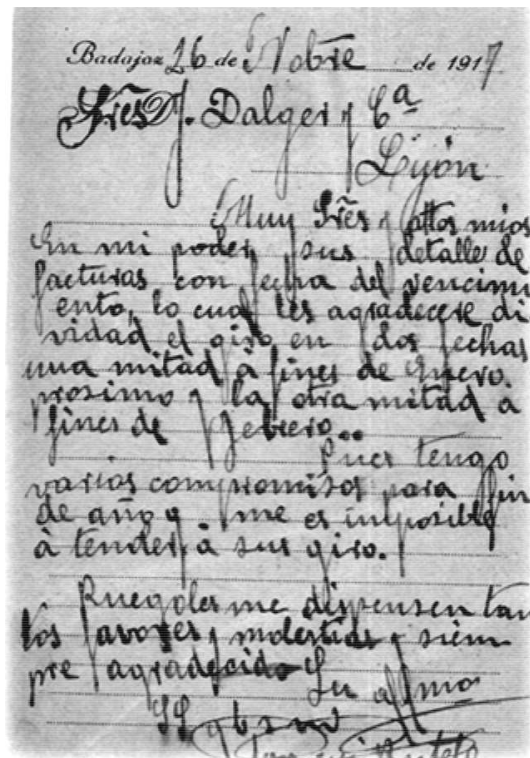 Badajoz 26 de Nobre de 1917
Sres D J. Dalger y Cª
Lyón
Muy Sres y attos mios
En mi poder sus detalle de
facturas con fecha del vencimi
ento, lo cual les agradecere di
vidad el giro en dos fechas
una mitad à fines de Enero
proximo y la otra mitad à
fines de Febrero..
Pues tengo
varios compromisos para fin
de año y me es imposible
à tender à sus giro.
Ruegoles me dispensen tan
tos favores y molestias y siem
pre agradecido Su affmo
SS q b s m